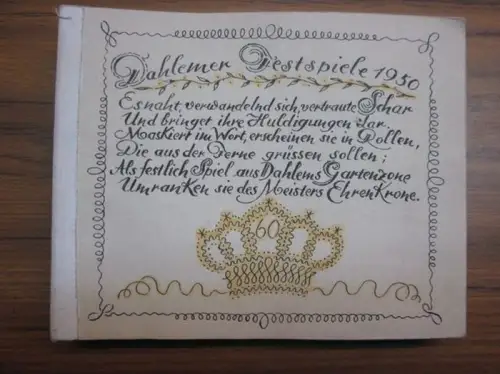 Dahlemer Festspiele 1950
Es naht, verwandelnd sich, vertraute Schar
Und bringet ihre Huldigungen dar.
Maskiert im Wort, erscheinen sie in Rollen,
Die aus der Ferne grüssen sollen;
Als festlich Spiel aus Dahlems Gartenzone
Umranken sie des Meisters Ehrenkrone.
60